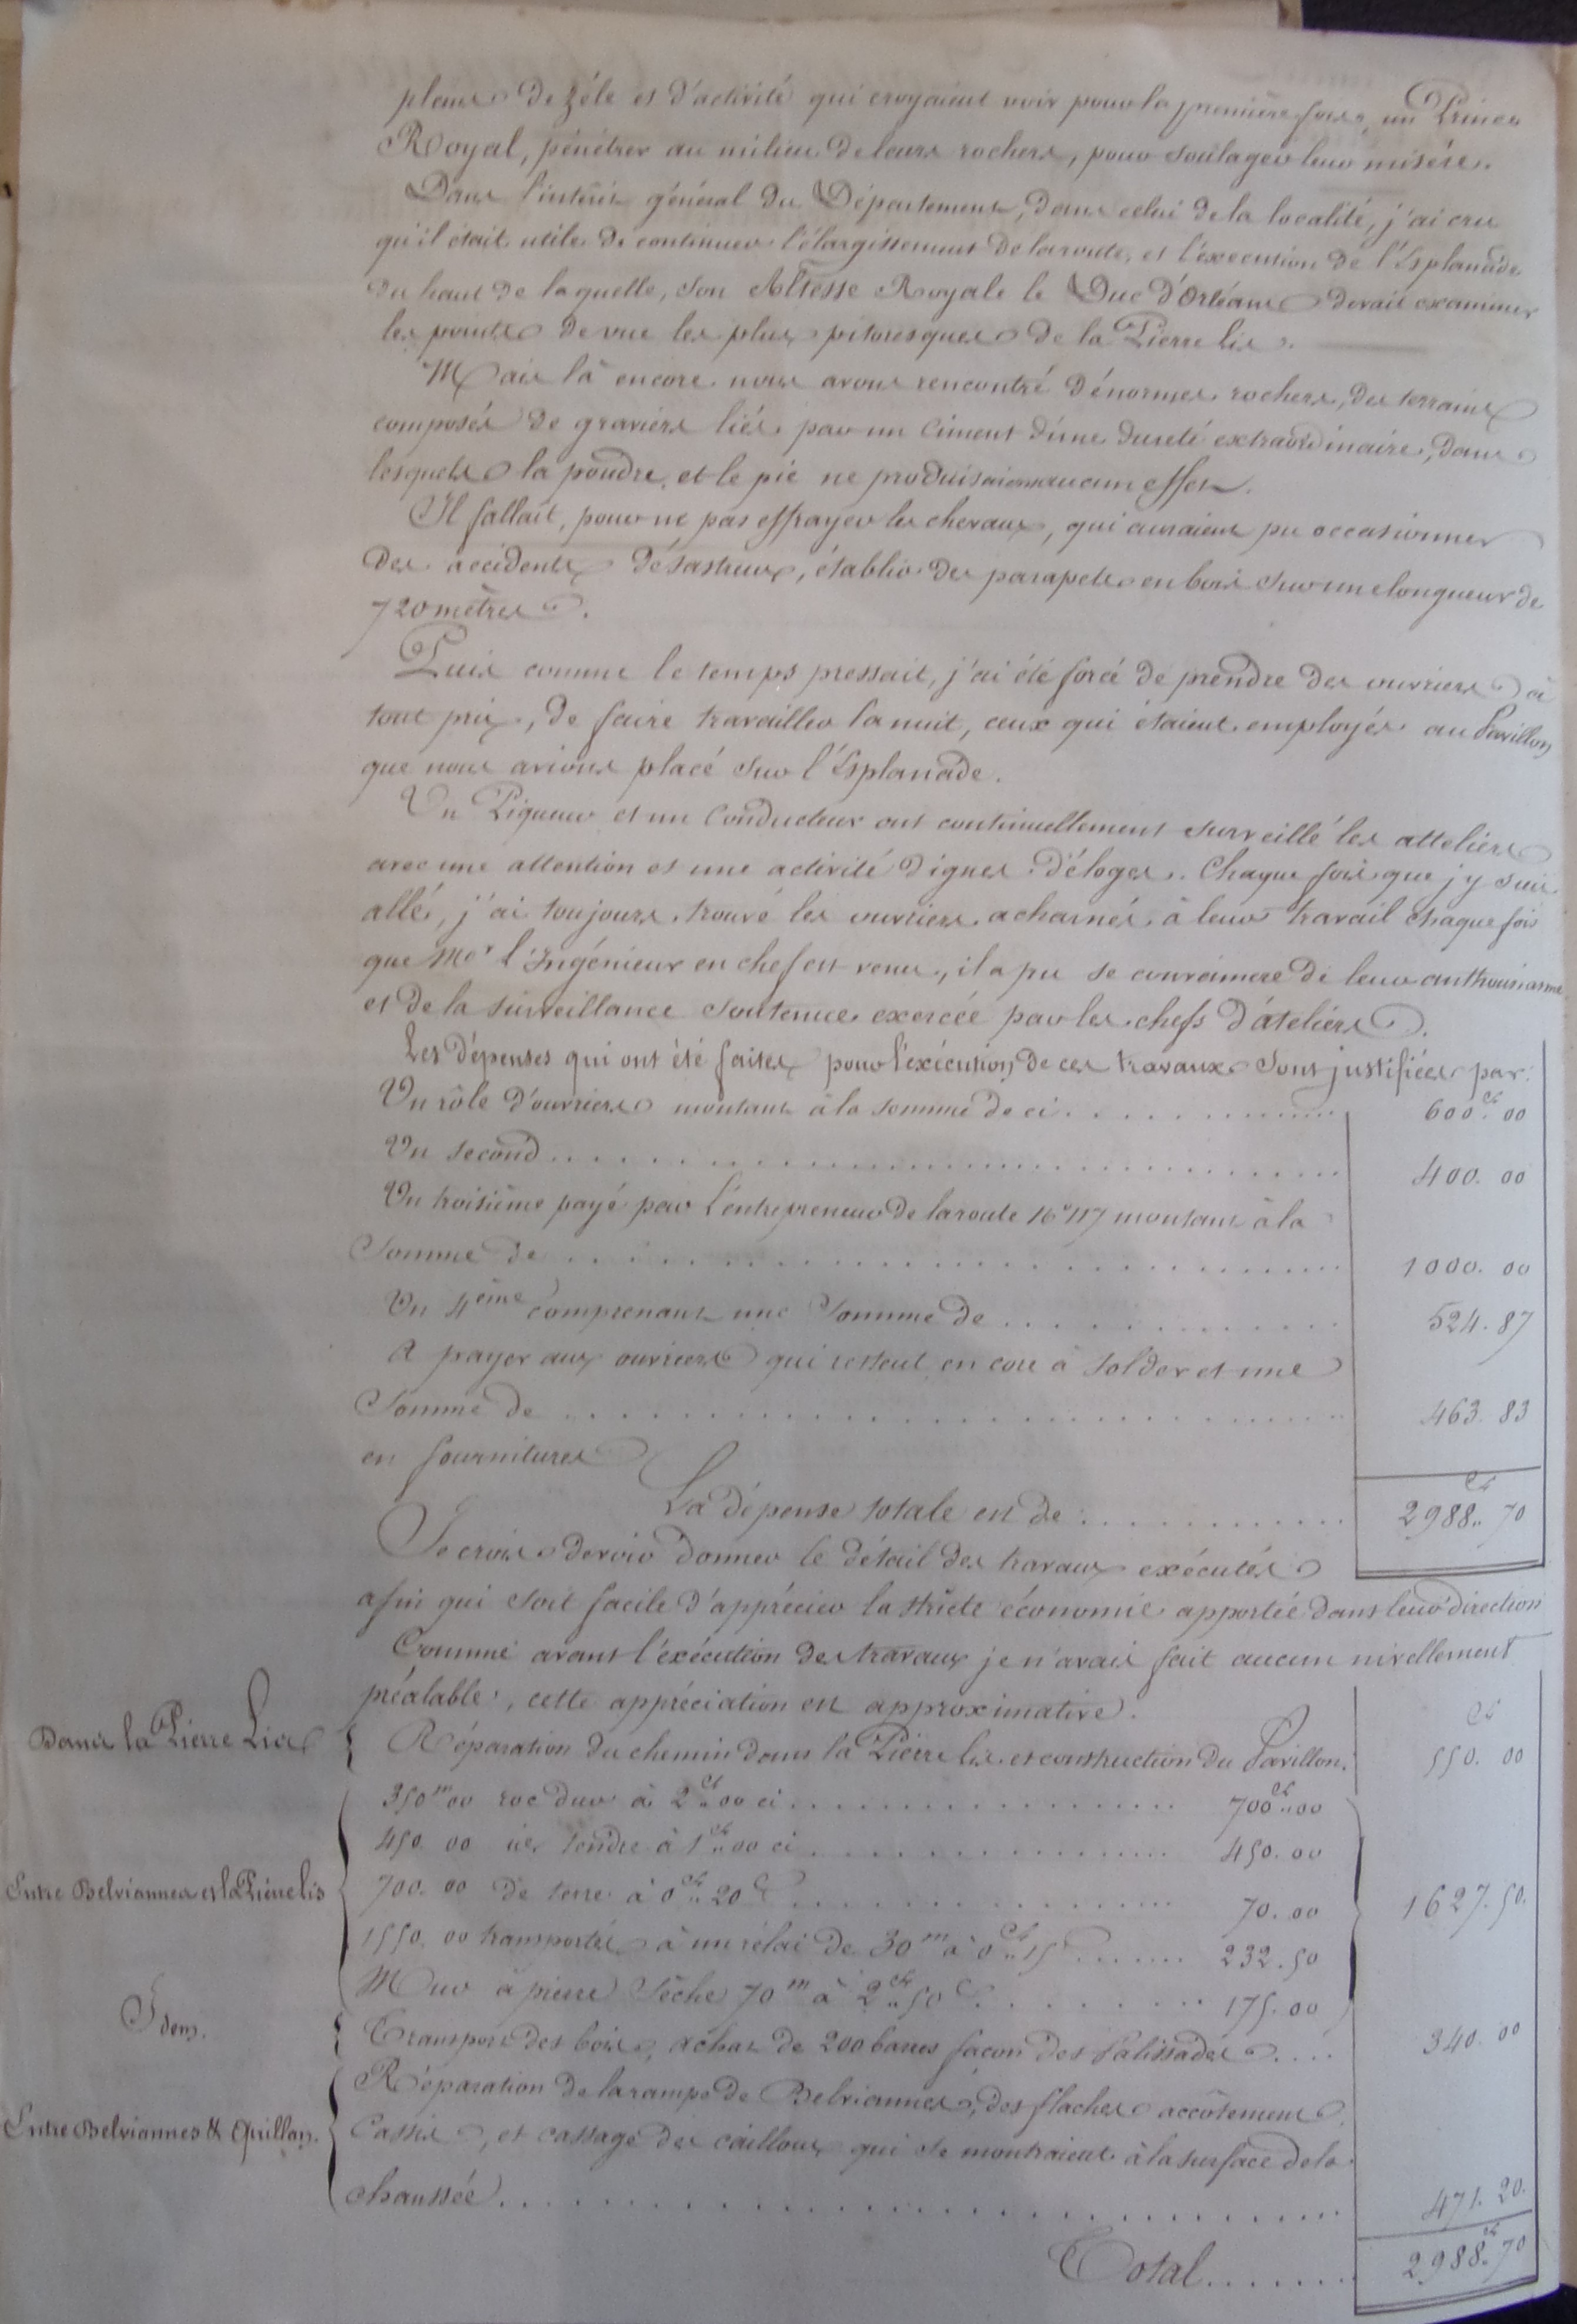 pleins de zéle et d'activité qui croyaient voir pour la premiere fois, un Prince
Royal, pénétrer au milieu de leurs rochers, pour soulager leur misére.
Dans l'intérêt général du Département, dans celui de la localité, j'ai cru
qu'il était utile de continuer l'élargissement de la route, et l'éxecution de l'Esplanade
du haut de laquelle, Son Altesse Royale le Duc d'Orléans devait examiner
les points de vue les plus pitoresques de la Pierre Lis.
Mais là encore nous avons rencontré d'énormes rochers, des terrains
composés de graviers liés par un ciment d'une dureté extraordinaire, dans
lesquels la poudre et le pic ne produisaient aucun effet.
Il fallait, pour ne pas effrayer les chevaux, qui auraient pu occasionner
des accidents désastreux, établir des parapets en bois sur une longueur de
720 mètres.
Puis comme le temps pressait, j'ai été forcé de prendre des ouvriers à
tout prix, de faire travailler la nuit, ceux qui étaient employés au Pavillon
que nous avions placé sur l'Esplanade.
Un Piqueur et un Conducteur ont continuellement surveillé les atteliers
avec une attention et une activité dignes d'éloges. Chaque fois que j'y suis
allé, j'ai toujours trouvé les ouvriers acharnés à leur travail chaque fois
que Mr l'Ingénieur en chef est venu, il a pu se convaincre de leur anthousiasme
et de la surveillance soutenue exercée par les chefs d'ateliers.
Les dépenses qui ont été faites pour l'exécution de ces travaux sont justifiées par:
Un rôle d'ouvriers montant à la somme de ci . . . . 600f. 00
Un second . . . . 400. 00
Un troisième payé par l'entrepreneur de la route No 117 montant à la
somme de . . . . 1000. 00
Un 4ème comprenant une somme de . . . . 524. 87
A payer aux ouvriers qui restent encore à solder et une
somme de . . . . 463. 83
en fournitures
La dépense totale est de . . . . 2988f. 70
Je crois devoir donner le détail des travaux exécutés
afin qui soit facile d'apprécier la stricte économie apportée dans leur direction
Comme avant l'éxécution des travaux je n'avais fait aucun nivellement
préalable, cette appréciation est approximative.
Dans la Pierre Lis { Réparation du chemin dans la Pierre lis et construction du Pavillon. 550. 00
350m 00 roc dur à 2f. 00 ci . . . . 700f. 00
450. 00 tendre à 1f. 00 ci . . . . 450. 00
Entre Belviannes et la Pierre lis 700. 00 de terre à 0f. 20c . . . . 70. 00 1627. 50.
1550. 00 transportés à un rélai de 30m à 0f. 15 . . . . 232. 50
Mur à pierre sèche 70m à 2f. 50c . . . . 175. 00
Idem. { Transport des bois, achat de 200 barres façon des Palissades . . . . 340. 00
Réparation de la rampe de Belviannes, des flaches accôtement
Entre Belviannes & Quillan. Cassis, et cassage des cailloux qui se montraient à la surface de la
chaussée . . . . 471. 20.
Total . . . . 2988f. 70